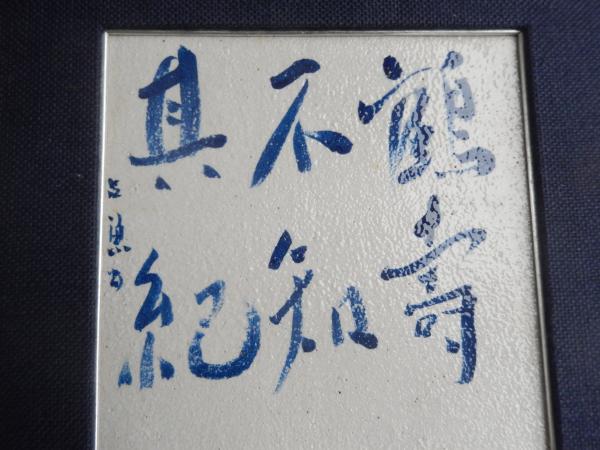 鶴寿
不知
其紀